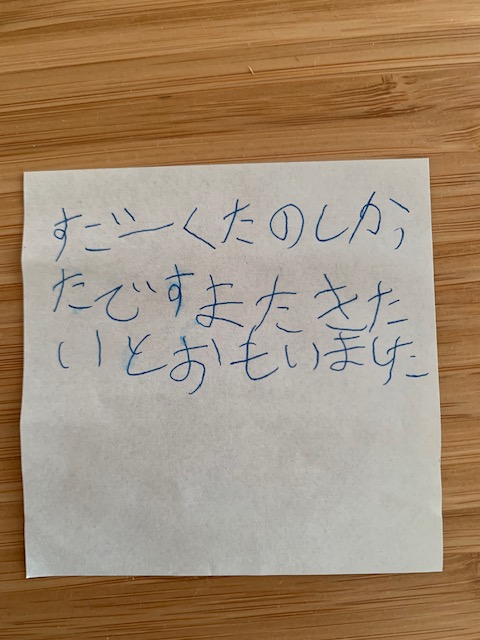 すごーくたのしかっ
たですまたきた
いとおもいました